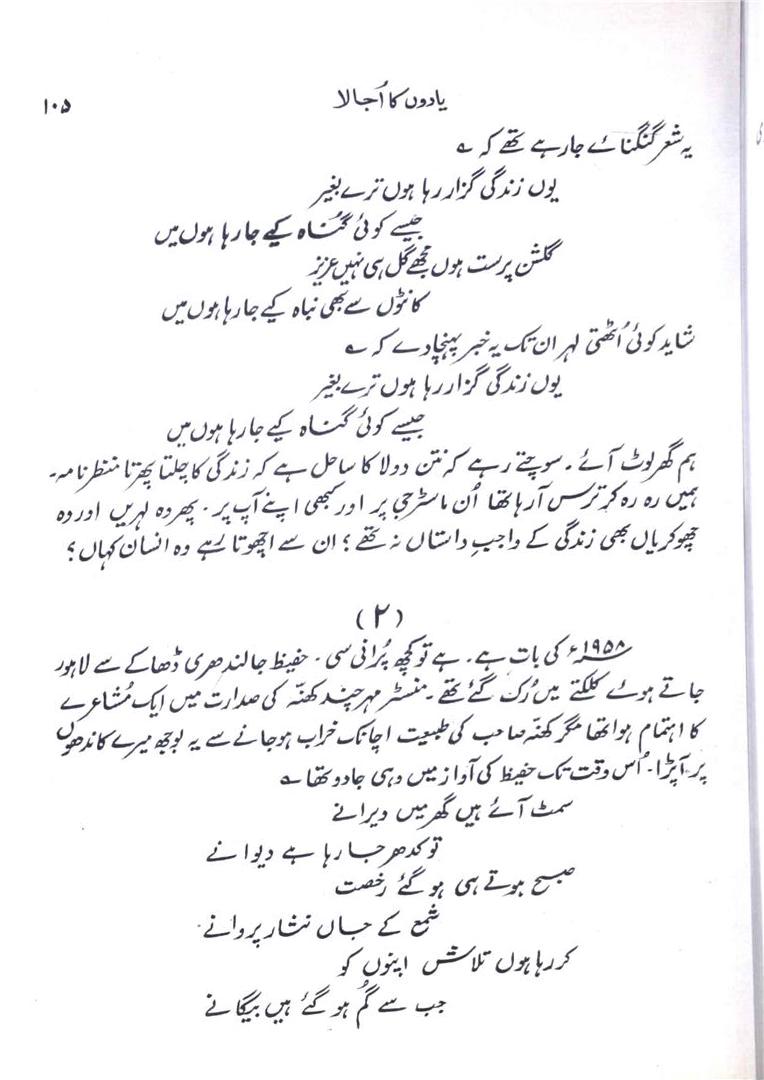 یادوں کا اُجالا ۱۰۵
یہ شعر گنگنائے جا رہے تھے کہ ؎
یوں زندگی گزار رہا ہوں ترے بغیر
جیسے کوئی گناہ کیے جا رہا ہوں میں
گلشن پرست ہوں مجھے گل ہی نہیں عزیز
کانٹوں سے بھی نباہ کیے جا رہا ہوں میں
شاید کوئی اُٹھتی لہر ان تک یہ خبر پہنچا دے کہ ؎
یوں زندگی گزار رہا ہوں ترے بغیر
جیسے کوئی گناہ کیے جا رہا ہوں میں
ہم گھر لوٹ آئے ۔ سوچتے رہے کہ نتن دولا کا ساحل ہے کہ زندگی کا چلتا پھرتا منظرنامہ ۔
ہمیں رہ رہ کر ترس آ رہا تھا اُن ماسٹر جی پر اور کبھی اپنے آپ پر ۔ پھر وہ لہریں اور وہ
چھوکریاں بھی زندگی کے واجب داستاں نہ تھے ؛ ان سے اچھوتا رہے وہ انسان کہاں ؟
(۲)
۱۹۵۸ء کی بات ہے ۔ ہے تو کچھ پُرانی سی ۔ حفیظ جالندھری ڈھاکے سے لاہور
جاتے ہوئے کلکتے میں رُک گئے تھے ۔ منسٹر مہر چند کھنّہ کی صدارت میں ایک مُشاعرے
کا اہتمام ہوا تھا مگر کھنّہ صاحب کی طبیعت اچانک خراب ہو جانے سے یہ بوجھ میرے کاندھوں
پر آ پڑا ۔ اُس وقت تک حفیظ کی آواز میں وہی جادو تھا ؎
سمٹ آئے ہیں گھر میں ویرانے
تو کدھر جا رہا ہے دیوانے
صبح ہوتے ہی ہو گئے رخصت
شمع کے جاں نثار پروانے
کر رہا ہوں تلاش اپنوں کو
جب سے گُم ہو گئے ہیں بیگانے